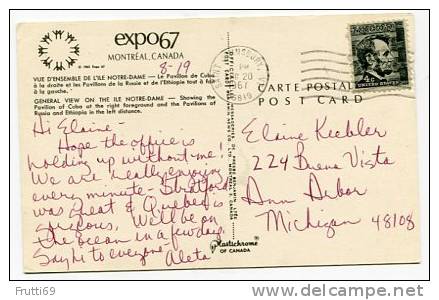 expo67
MONTRÉAL, CANADA
8-19
VUE D'ENSEMBLE DE L'ILE NOTRE-DAME — Le Pavillon de Cuba
à la droite et les Pavillons de la Russie et de l'Ethiopie à
à la gauche.
GENERAL VIEW ON THE ILE NOTRE-DAME — Showing the
Pavilion of Cuba at the right foreground and the Pavilions of
Russia and Ethiopia in the left distance.
Hi Elaine,
Hope the office is
holding up without me!
We are really enjoying
every minute - Stratford
was great & Quebec is
gorgeous. Will be on
the ocean in a few days.
Say hi to everyone. Aleta
PM
20
1967
4¢
UNITED STATES
CARTE POSTALE
POST CARD
Elaine Keebler
224 Buena Vista
Ann Arbor
Michigan 48108
Plastichrome
OF CANADA
Frutti69
delcampe.net